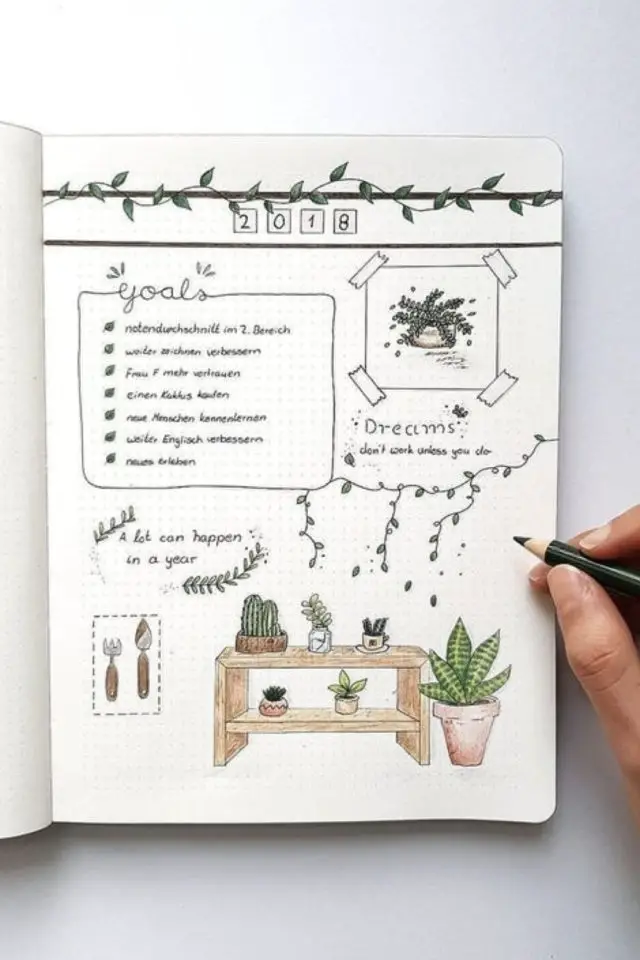 2018
goals
notendurchschnitt im 2. Bereich
weiter zeichnen verbessern
Frau F mehr vertrauen
einen Kaktus kaufen
neue Menschen kennenlernen
weiter Englisch verbessern
neues erleben
Dreams
don't work unless you do
A lot can happen
in a year